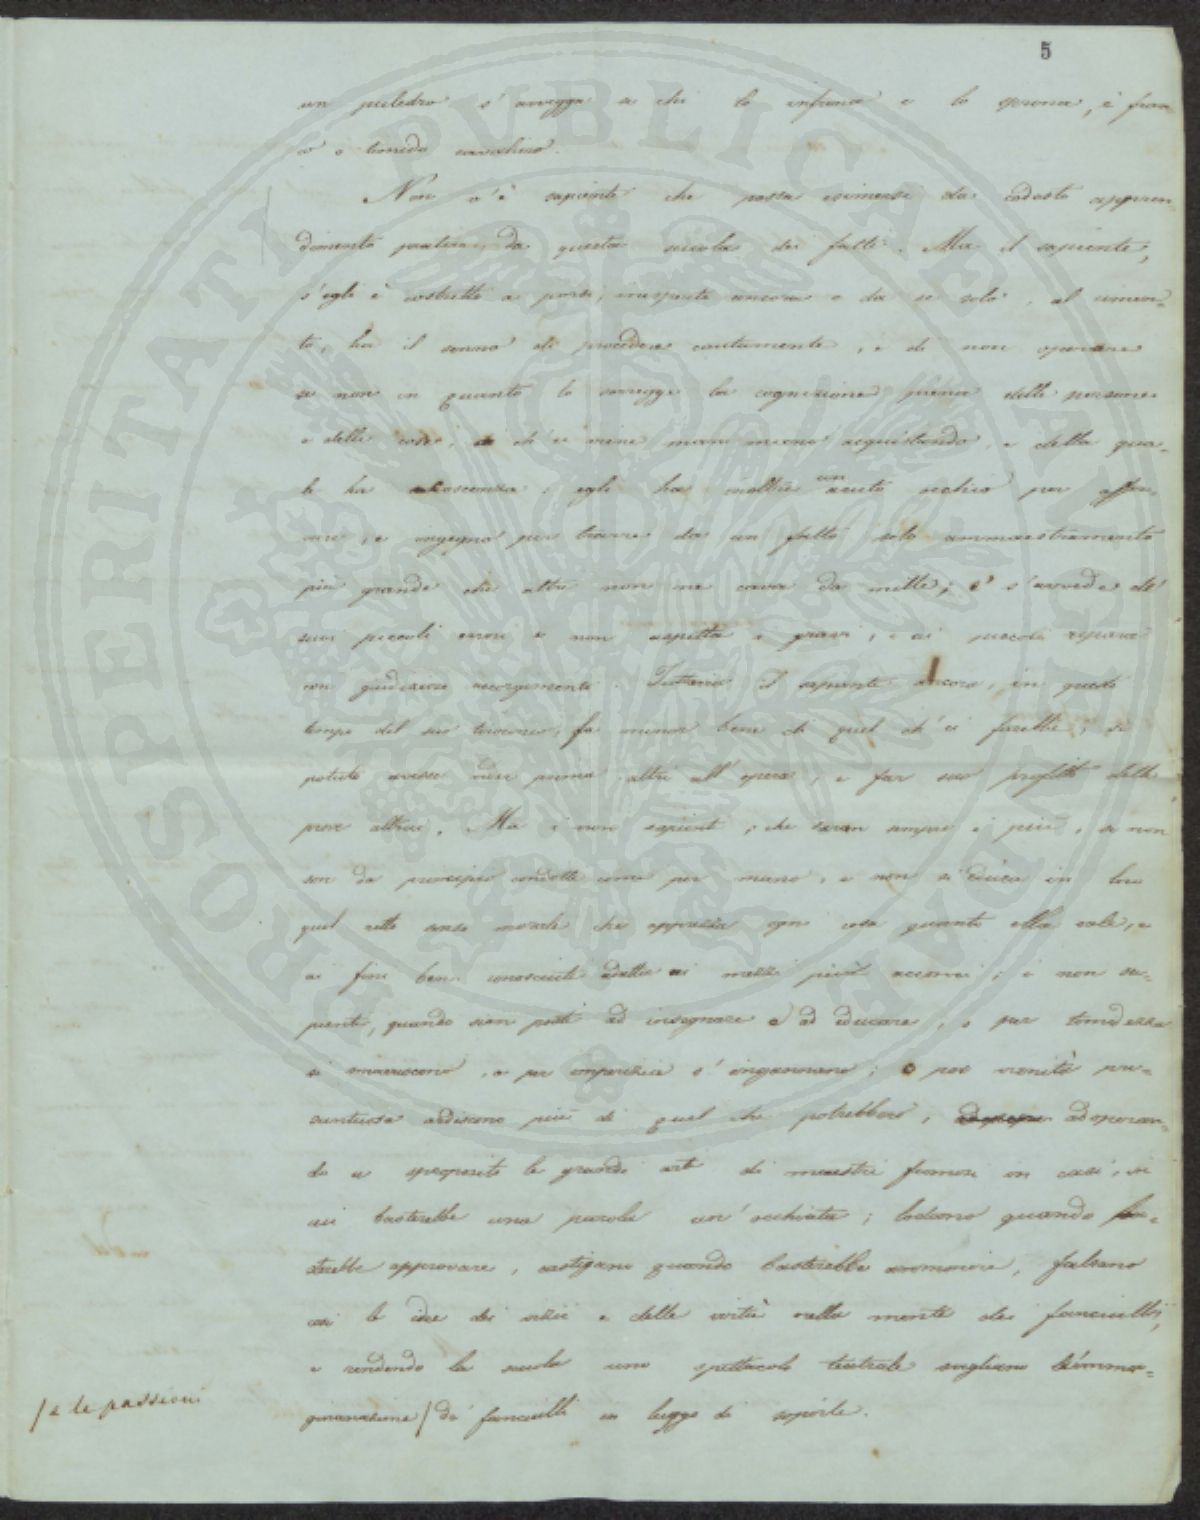 5
un puledro s'avvegga se chi lo infrena e lo sprona, è fran-
co o timido cavalcatore.
Non v'è sapiente che possa esimersi da codesto appren-
dimento pratico, da questa scuola dei fatti. Ma il sapiente,
s'egli è costretto a porsi, inesperto ancora e da se solo, al cimen-
to, ha il senno di procedere cautamente, e di non operare
se non in quanto lo sorregge la cognizione piena delle persone
e delle cose, ch'ei viene mano mano acquistando, e della qua-
le ha coscienza: egli ha inoltre un acuto occhio per
e ingegno per trarre da un fatto solo ammaestramento
più grande che altri non ne cava da mille; e s'avvede de'
suoi piccoli errori e non aspetta i gravi, e ai piccoli ripara
con giudiziosi accorgimenti. Tuttavia il sapiente ancora, in questo
tempo del suo tirocinio, fa minor bene di quel ch'ei farebbe, se
potuto avesse veder prima altri all'opera, e far suo profitto delle
prove altrui. Ma i non sapienti, che saran sempre i più, se non
son da principio condotti come per mano, e non si educa in loro
quel retto senso morale che apprezza ogni cosa quanto ella vale, e
ai fini ben conosciuti adatta i mezzi più acconci; i non sa-
pienti, quando sian posti ad insegnare e ad educare, o per timidezza
si smarriscono, o per imperizia s'ingannano; o per vanità pre-
suntuosa ardiscono più di quel che potrebbero, adoperan-
do a sproposito le grandi arti di maestri famosi in casi, in
cui basterebbe una parola un'occhiata; lodano quando ba-
sterebbe approvare, castigano quando basterebbe ammonire, falsano
così le idee dei vizii e delle virtù nella mente dei fanciulli,
e rendendo la scuola uno spettacolo teatrale svegliano l'imma-
ginazione / de' fanciulli in luogo di sopirle.
/ e le passioni